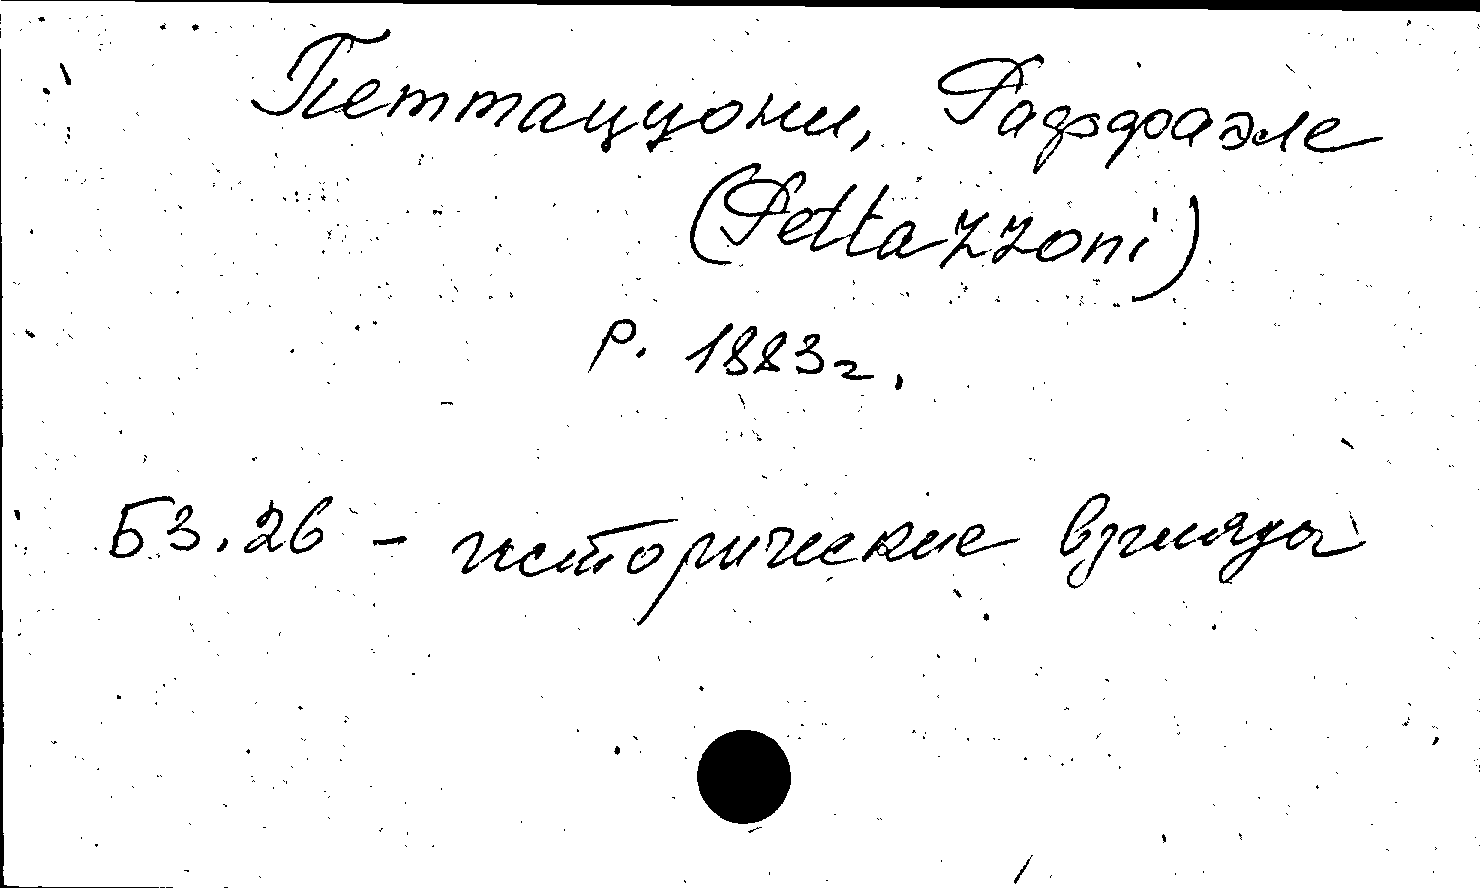 Петтаццони, Раффаэле
(Pettazzoni)
р. 1883г.
Б3.26 - исторические взгляды